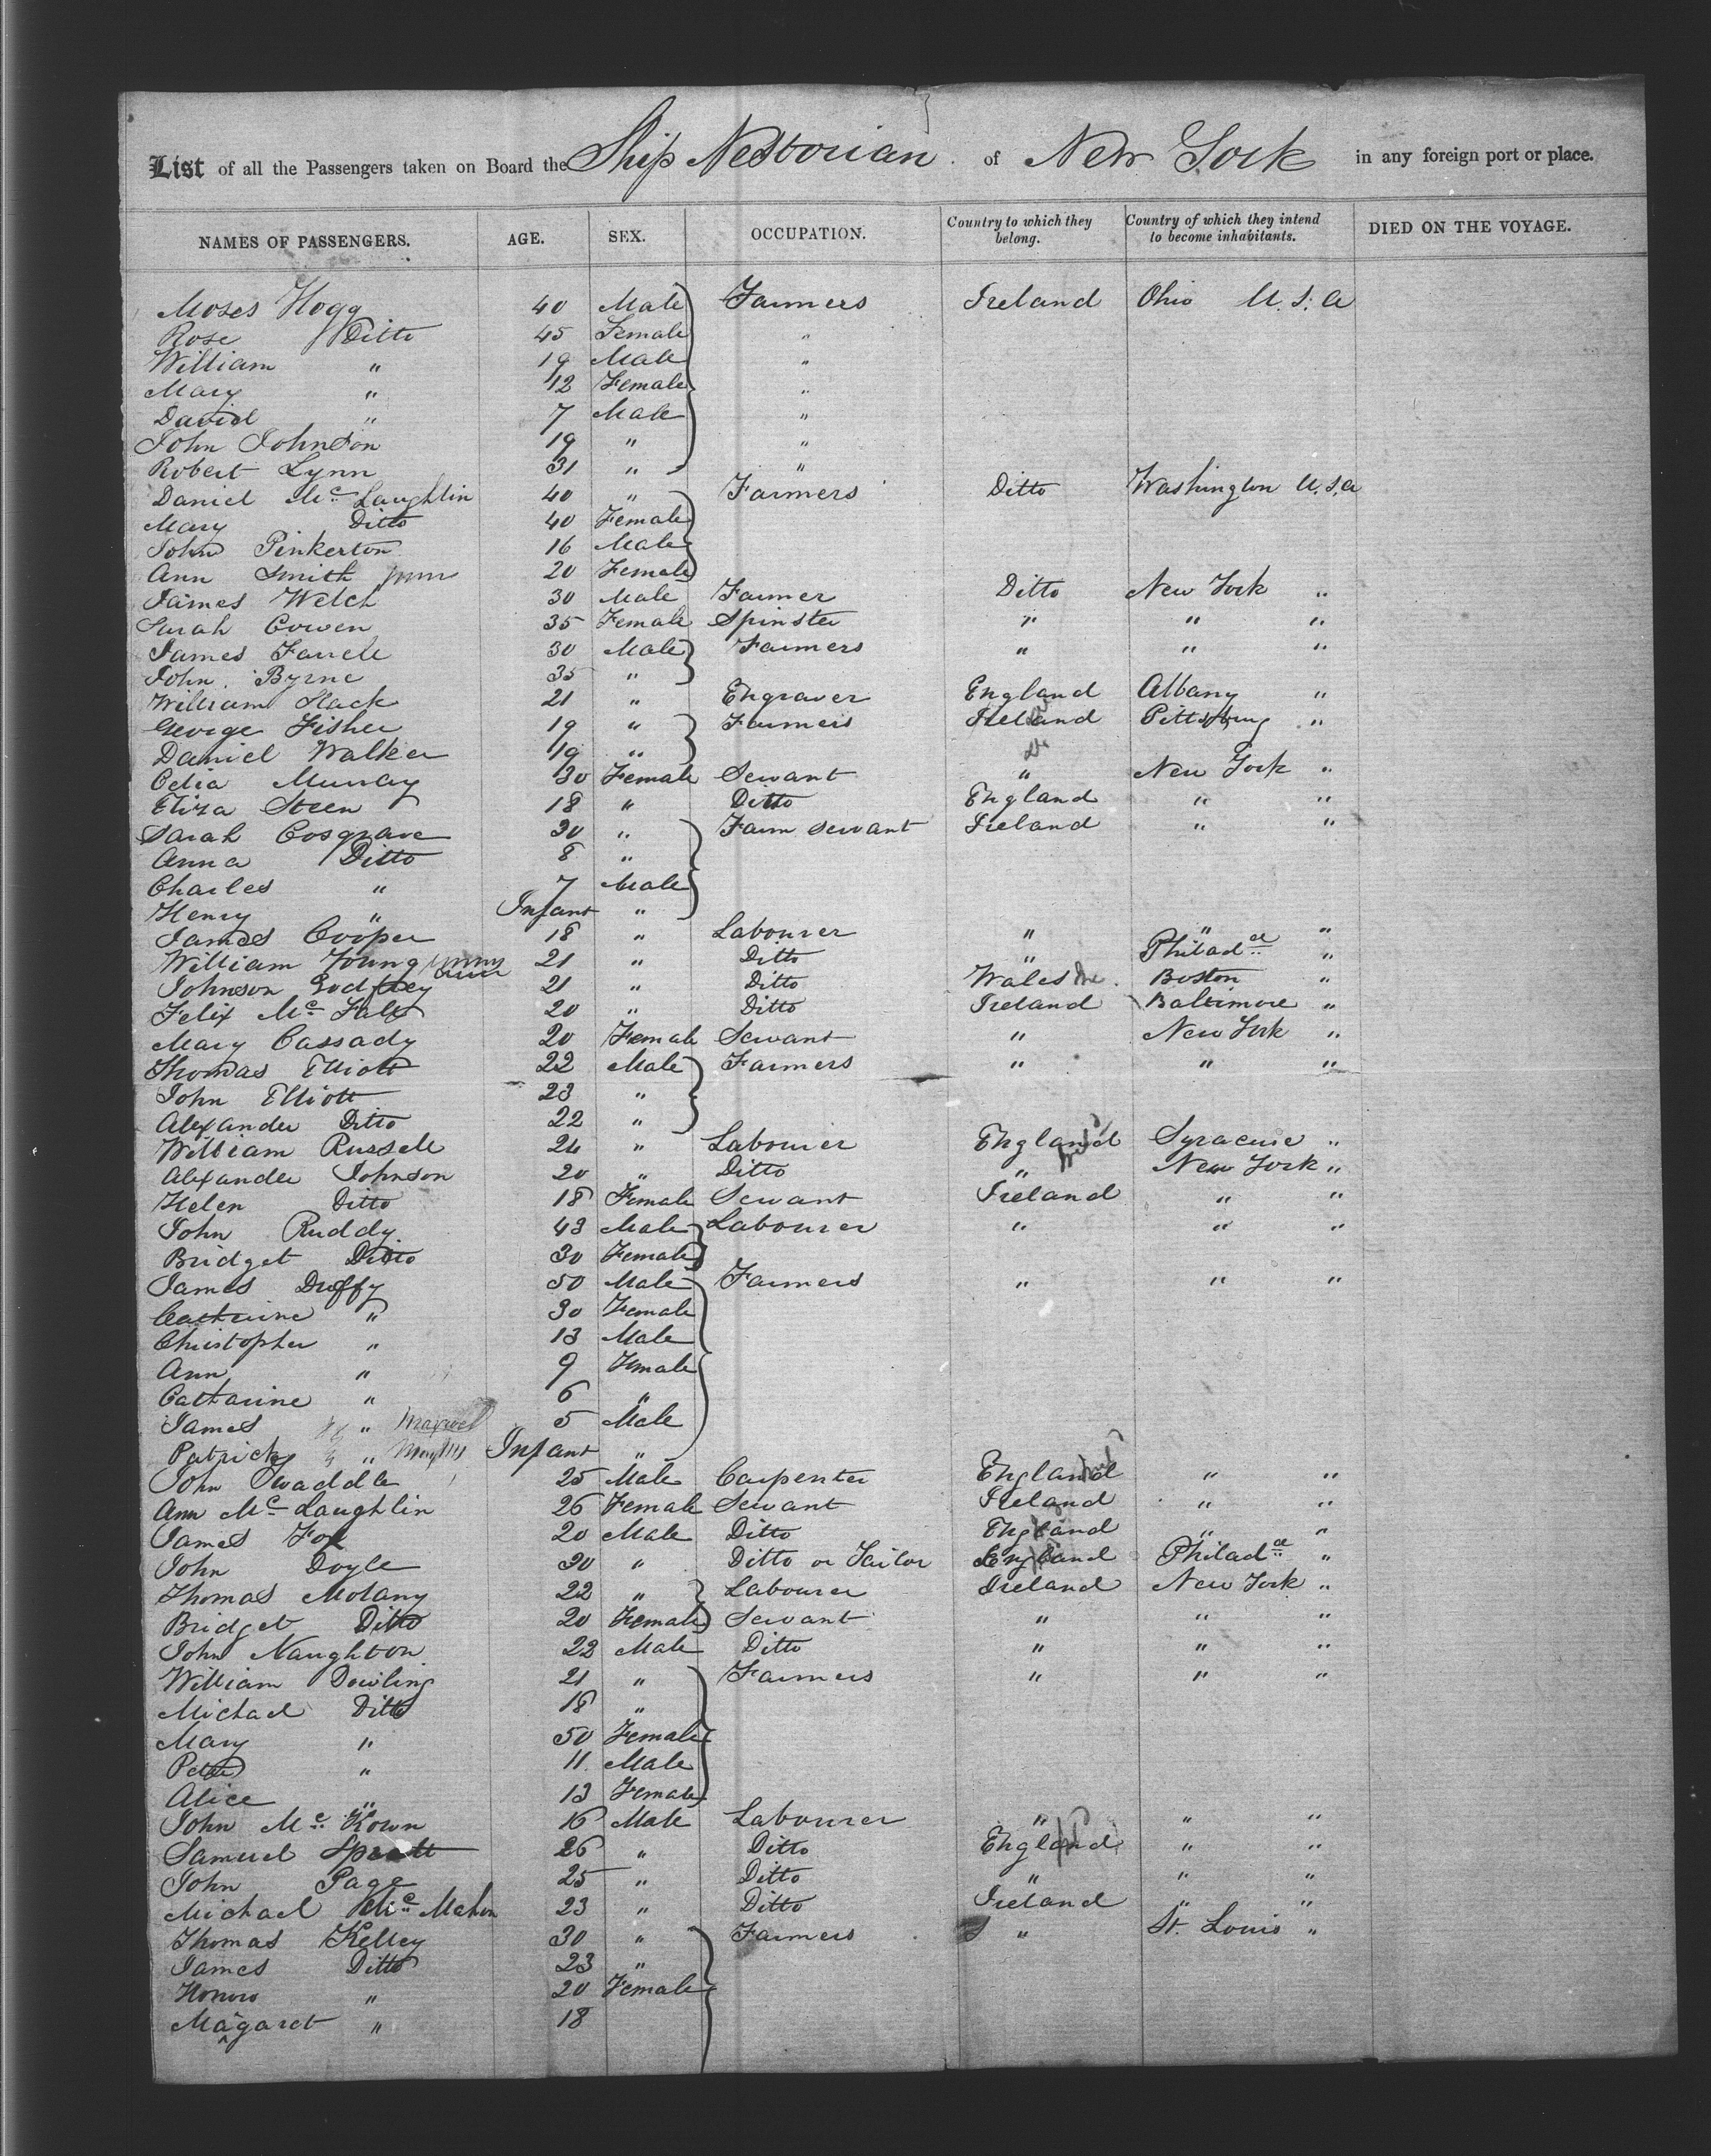 List of all the Passengers taken on Board the Ship Nestorian of New York in any foreign port or place.
NAMES OF PASSENGERS. AGE. SEX. OCCUPATION. Country to which they belong. Country of which they intend to become inhabitants. DIED ON THE VOYAGE.
Moses Hogg 40 Male Farmers Ireland Ohio U.S.a
Rose Ditto 45 Female "
William " 19 Male "
Mary " 12 Female "
David " 7 Male "
John Johnston 19 " "
Robert Lynn 31 " "
Daniel Mc Laughlin 40 " Farmers Ditto Washington U.S.a
Mary Ditto 40 Female
John Pinkerton 16 Male
Ann Smith 20 Female
James Welch 30 Male Farmer Ditto New York "
Sarah Cowen 35 Female Spinster " " "
James Farrell 30 Male Farmers " " "
John Byrne 35 "
William Slack 21 " Engraver England Albany "
George Fisher 19 " Farmers Ireland Pittsburg "
Daniel Walker 19 "
Celia Murray 30 Female Servant " New York "
Eliza Steen 18 " Ditto England " "
Sarah Cosgrave 30 " Farm servant Ireland " "
Anna Ditto 8 "
Charles " 7 Male
Henry " Infant "
James Cooper 18 " Labourer " " "
William Young 21 " Ditto " Philad a "
Johnson Godfrey 21 " Ditto Wales Boston "
Felix Mc 20 " Ditto Ireland Baltimore "
Mary Cassady 20 Female Servant " New York "
Thomas Elliott 22 Male Farmers " " "
John Elliott 23 "
Alexander Ditto 22 "
William Russell 24 " Labourer England Syracuse "
Alexander Johnson 20 " Ditto " New York "
Helen Ditto 18 Female Servant Ireland " "
John Ruddy 43 Male Labourer " " "
Bridget Ditto 30 Female
James Duffy 50 Male Farmers " " "
Catherine " 30 Female
Christopher " 13 Male
Ann " 9 Female
Catharine " 6 "
James " 5 Male
Patrick " Infant "
John Twaddle 25 Male Carpenter England " "
Ann Mc Laughlin 26 Female Servant Ireland " "
James Fox 20 Male Ditto England " "
John Doyle 30 " Ditto or Tailor England Philad a "
Thomas Molany 22 " Labourer Ireland New York "
Bridget Ditto 20 Female Servant " " "
John Naughton 22 Male Ditto " " "
William Dowling 21 " Farmers " " "
Michael Ditto 18 "
Mary " 50 Female
Peter " 11 Male
Alice " 13 Female
John Mc Kown 16 Male Labourer " " "
Samuel Spratt 26 " Ditto England " "
John Page 25 " Ditto " " "
Michael Mc Mahon 23 " Ditto Ireland " "
Thomas Kelley 30 " Farmers " St. Louis "
James Ditto 23 "
Honora " 20 Female
Magaret " 18